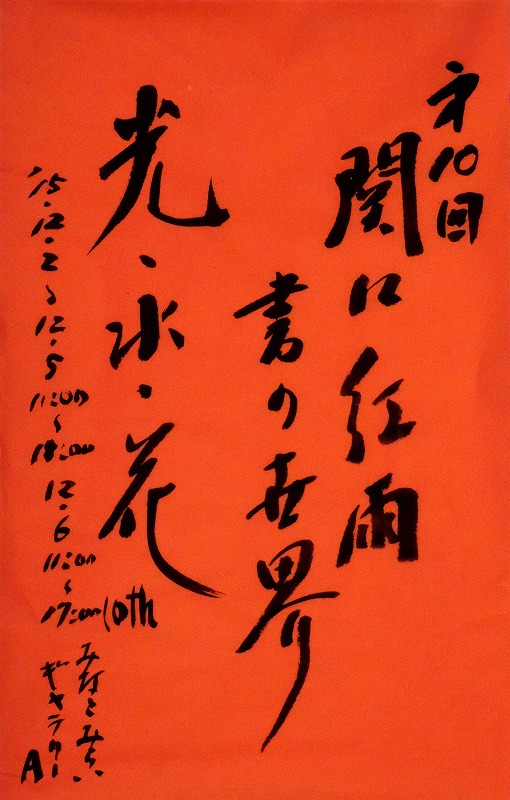 才10回
関口紅雨
書の世界
光・水・花
10th
'15.12.2〜12.5 11:00〜18:00 12.6 11:00〜17:00
みなとみらい
ギャラリー
A